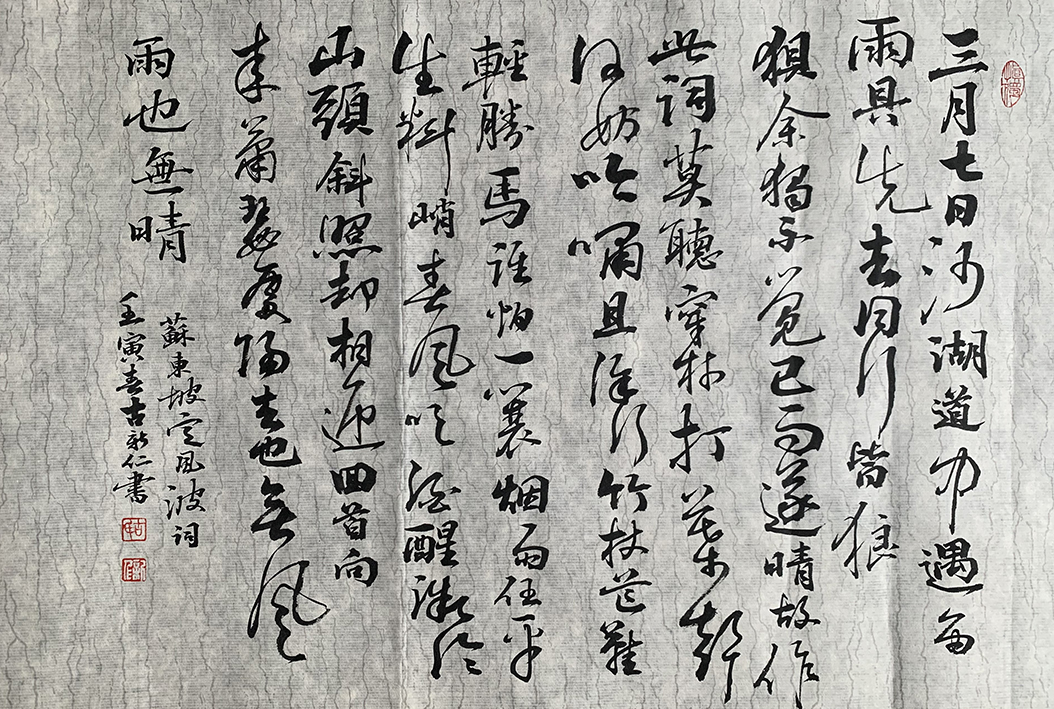 三月七日沙湖道中遇雨
雨具先去同行皆狼
狽余獨不覺已而遂晴故作
此詞莫聽穿林打葉聲
何妨吟嘯且徐行竹杖芒鞋
輕勝馬誰怕一蓑烟雨任平
生料峭春風吹酒醒微冷
山頭斜照却相迎回首向
来蕭瑟處歸去也無風
雨也無晴
蘇東坡定風波詞
壬寅春古新仁書